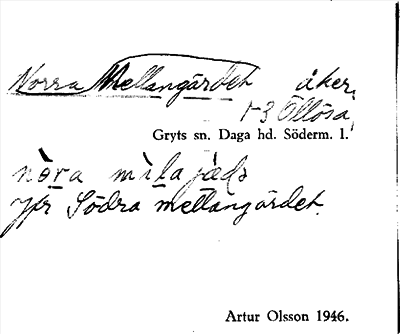 Norra Mellangärdet åker,
1-3 Öllösa,
Gryts sn. Daga hd. Söderm. l.
nòra mìlajàds
jfr Södra mellangärdet.
Artur Olsson 1946.